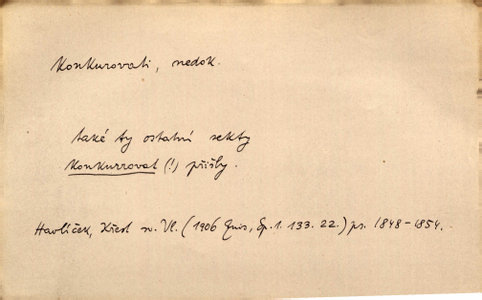 Konkurovati, nedok.
také ty ostatní sekty
Konkurrovat (!) přišly.
Havlíček, Křest sv. Vl. (1906 Quis, Sp. 1. 133. 22.) ps. 1848-1854.